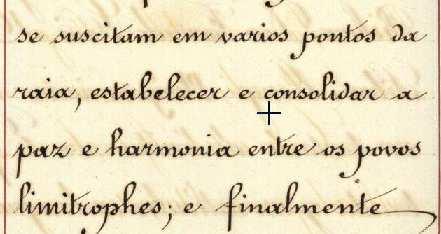 se suscitam em varios pontos da
raia, estabelecer e consolidar a
paz e harmonia entre os povos
limitrophes; e finalmente